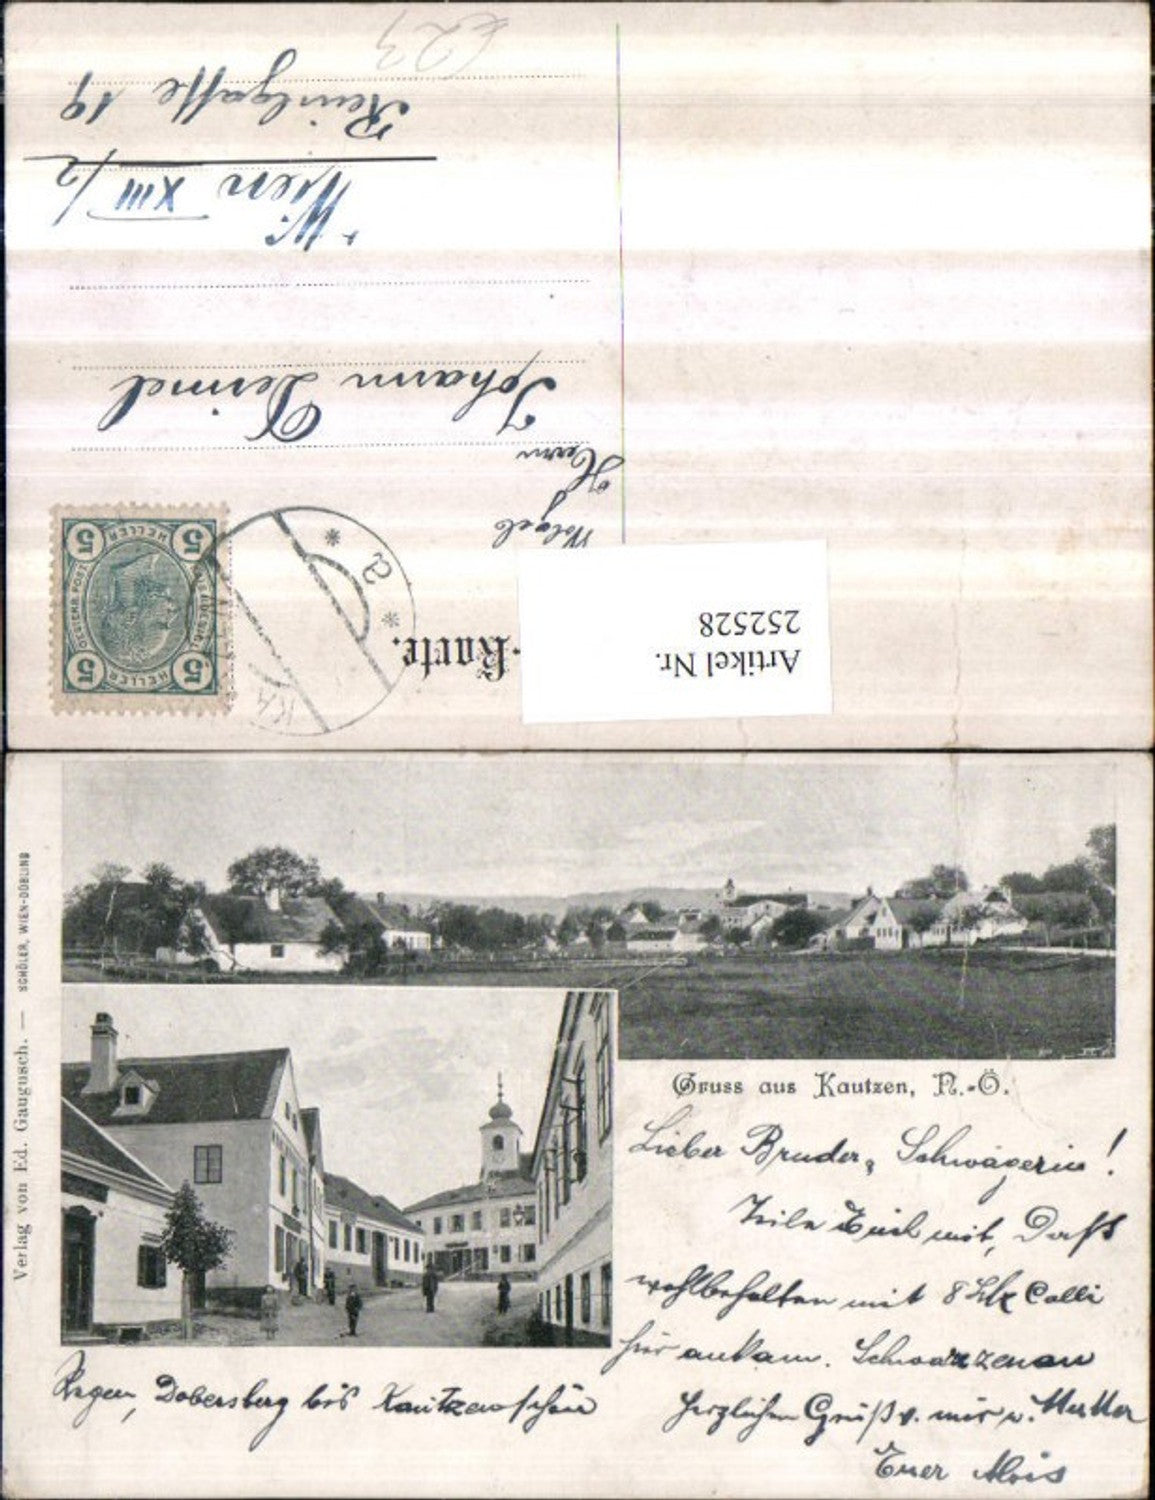 £23
Reinlgasse 19
Wien XIII/2
Johann Deimel
Wolgeb
Herrn
5 HELLER 5
5 HELLER 5
KA
-Karte.
Artikel Nr.
252528
Verlag von Ed. Gaugusch. — SCHÖLER, WIEN-DÖBLING
Gruss aus Kautzen, N.-Ö.
Lieber Bruder, Schwägerin!
Teile Euch mit, Dass
wohlbehalten mit 8 Colli
hier ankam. Schwarzenau
Regen, Dobersberg bis Kautzen schön
herzlichen Gruß v. mir u. Mutter
Euer Alois